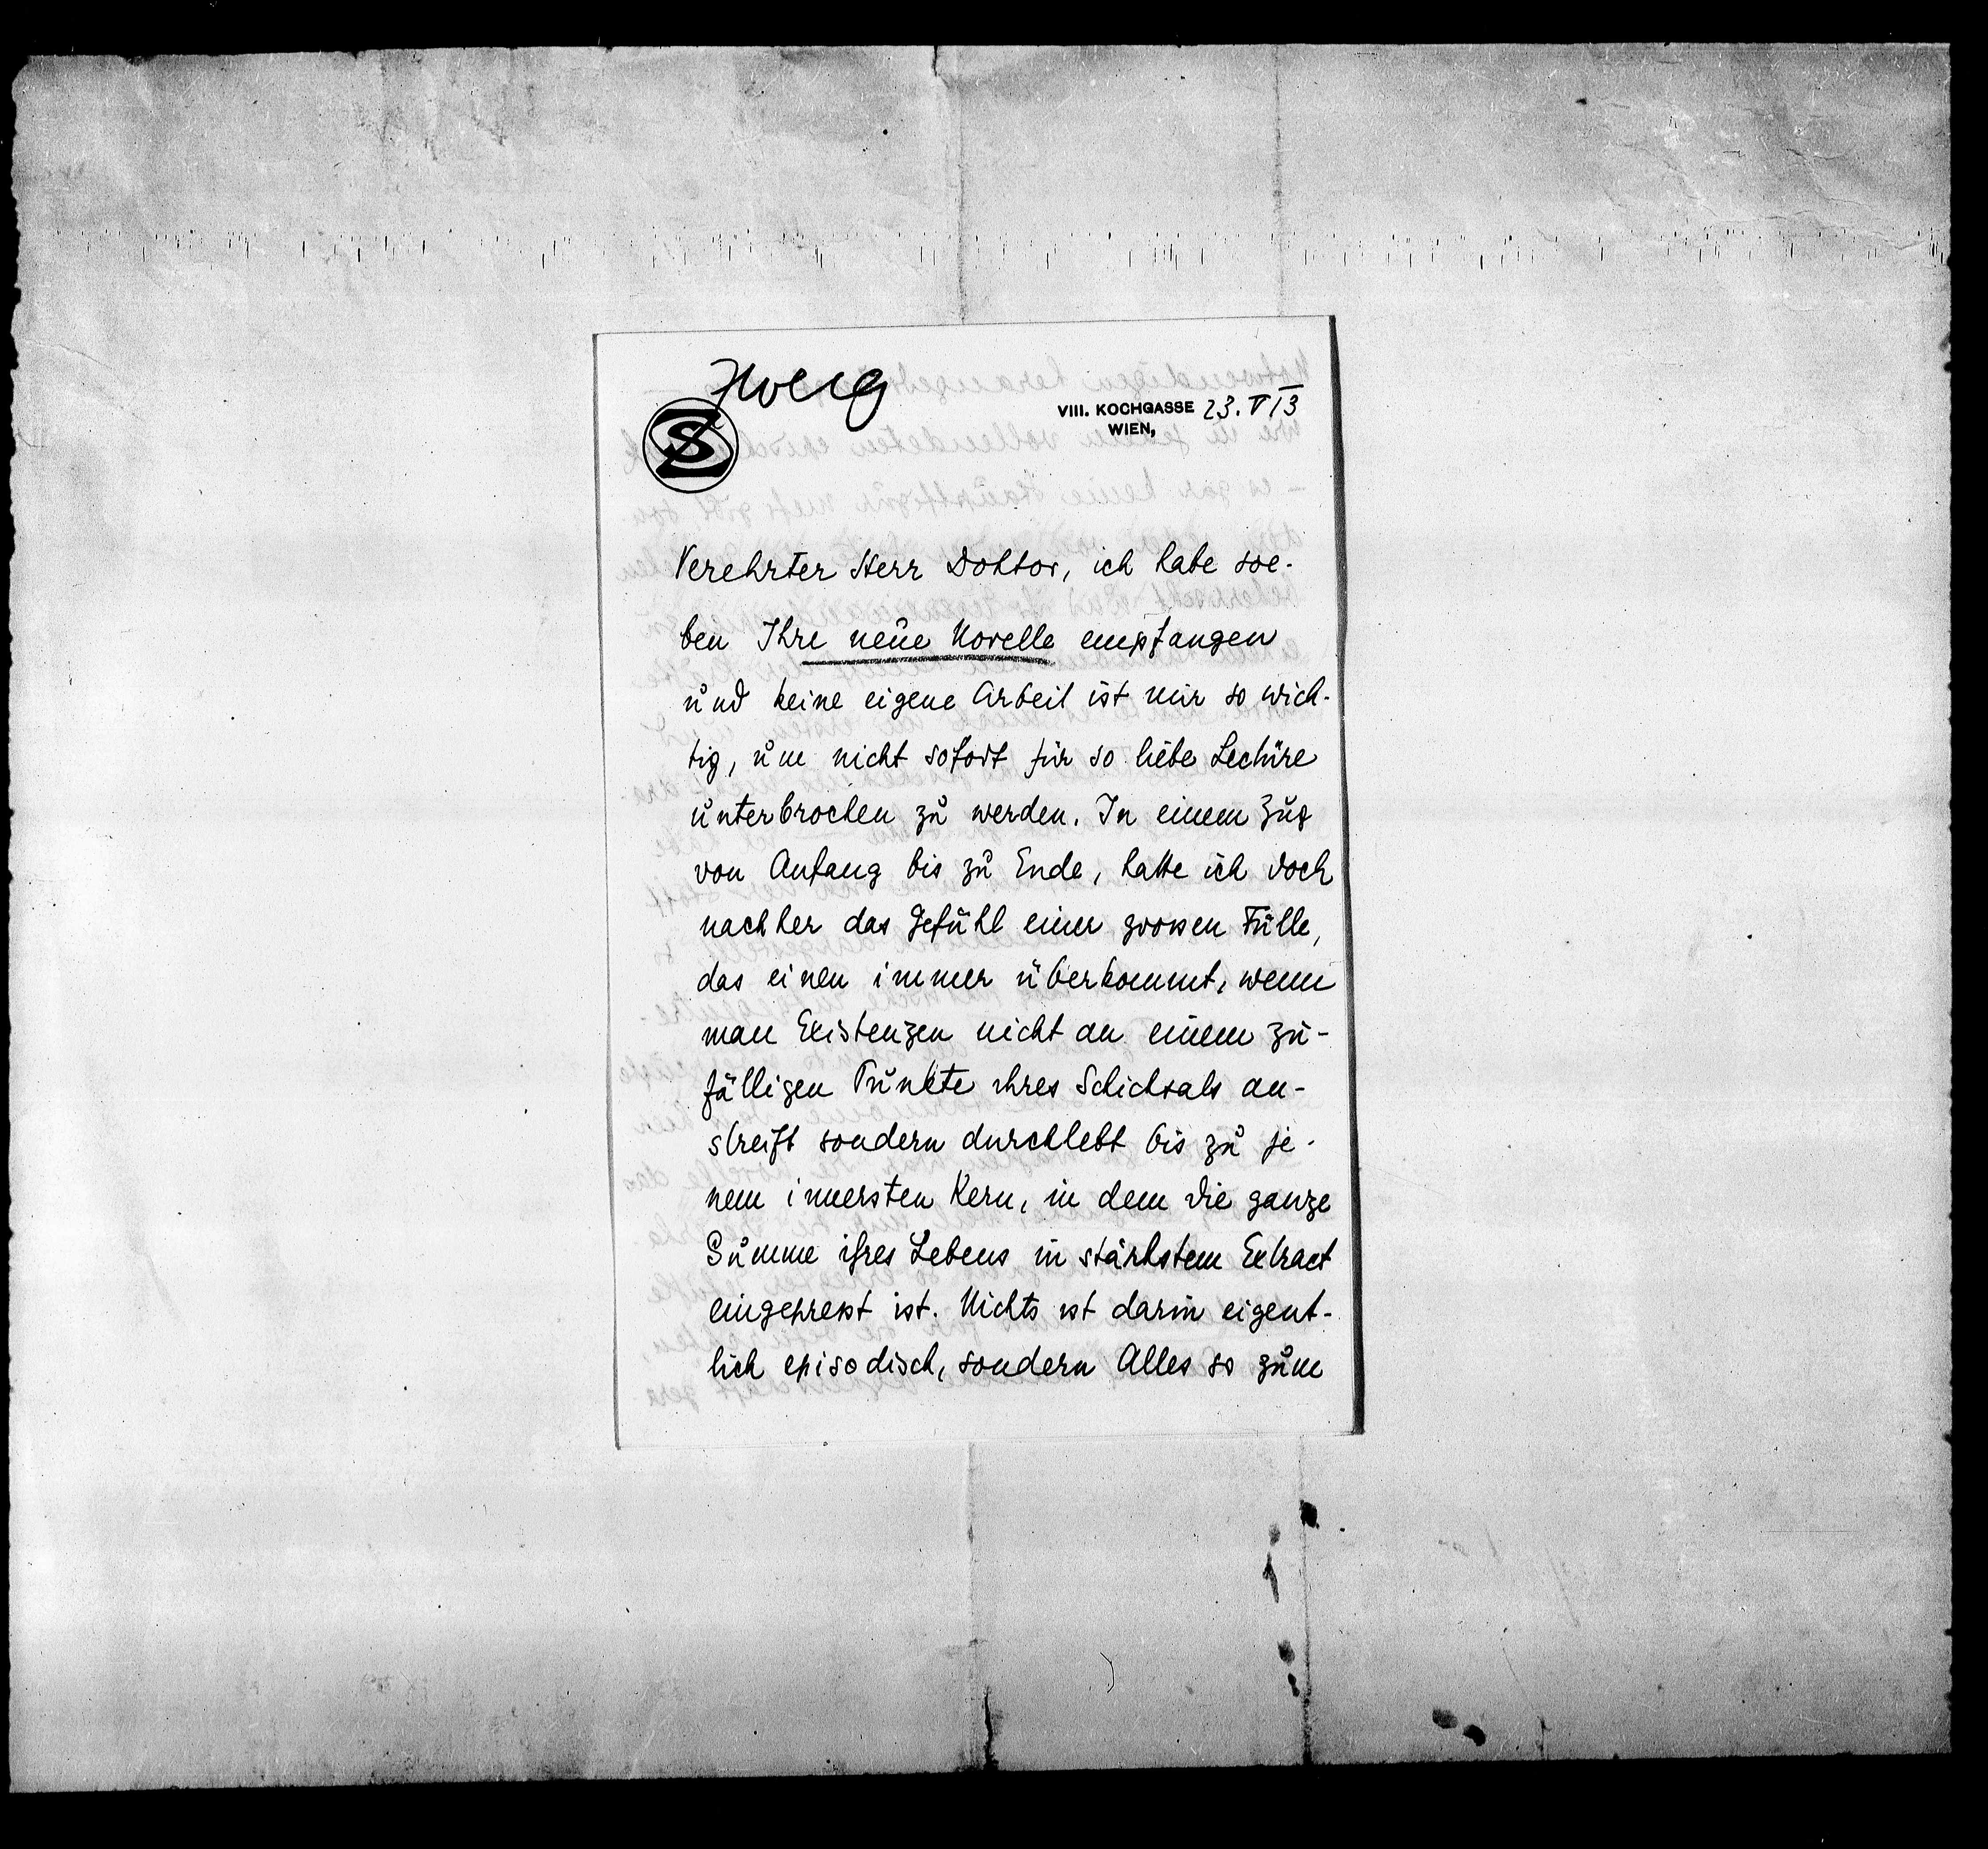 Zweig
SZ
VIII. KOCHGASSE 23. V 13
WIEN,
Verehrter Herr Doktor, ich habe soe-
ben Ihre neue Novelle empfangen
und keine eigene Arbeit ist mir so wich-
tig, um nicht sofort für so liebe Lectüre
unterbrochen zu werden. In einem Zug
von Anfang bis zu Ende, hatte ich doch
nachher das Gefühl einer grossen Fülle,
das einen immer überkommt, wenn
man Existenzen nicht an einem zu-
fälligen Punkte ihres Schicksals an-
streift sondern durchlebt bis zu je-
nem innersten Kern, in dem die ganze
Summe ihres Lebens in stärkstem Extract
eingepresst ist. Nichts ist darin eigent-
lich episodisch, sondern Alles so zum